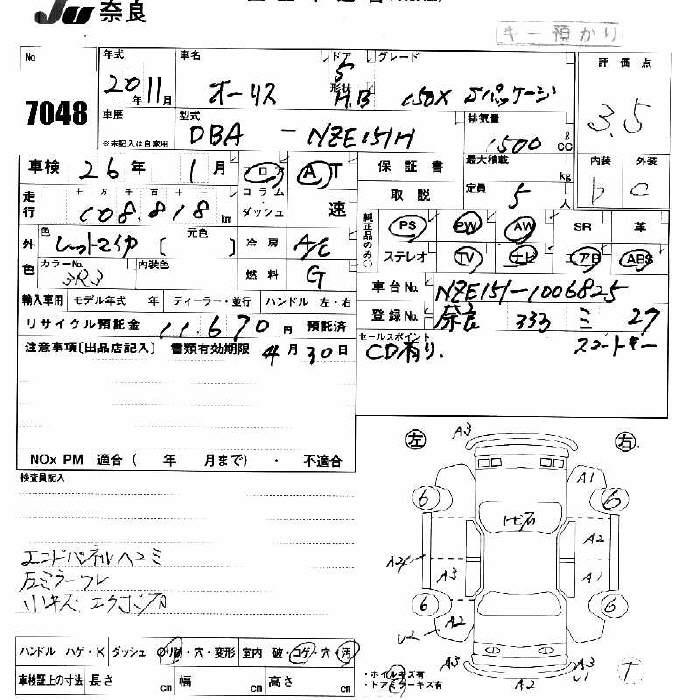 JU 奈良
キー預かり
No. 7048
年式 20年11月
車名 オーリス
ドア 形状 5 H.B
グレード 150X Sパッケージ
評価点 3.5
車歴 ※未記入は自家用
型式 DBA - NZE151H
排気量 1500 ℓ CC
内装 外装
b C
車検 26年 1月
コラム・ダッシュ
AT 速
保証書
取説
最大積載 kg
定員 5 人
走行 十万千百十一
108.818 km
外色 色 レッドマイカ [元色]
カラーNo. 3R3
内装色
冷房 A/C
燃料 G
純正品のみ○
PS PW AW SR 革
ステレオ TV ナビ エアB ABS
輸入車用 モデル年式 年 ディーラー・並行 ハンドル 左・右
車台No. NZE151-1006825
登録No. 奈良 333 ミ 27
リサイクル預託金 11.670円 預託済
注意事項〔出品店記入〕 書類有効期限 4月30日
セールスポイント
CD有り. スマートキー
NOx PM 適合( 年 月まで)・ 不適合
検査員記入
エンドパネルヘコミ
左ミラーフレ
小キズ エクボ
左 右
A3
A1
6 6
トビ石
A2 A2
A3 A1
6 6
A2 A2
A3 A2 A3
ハンドル ハゲ・ス ダッシュ ・穴・変形 室内 破・コゲ・穴・汚
車検証上の寸法 長さ cm 幅 cm 高さ cm
・ホイルキズ有
・ドアミラーキズ有